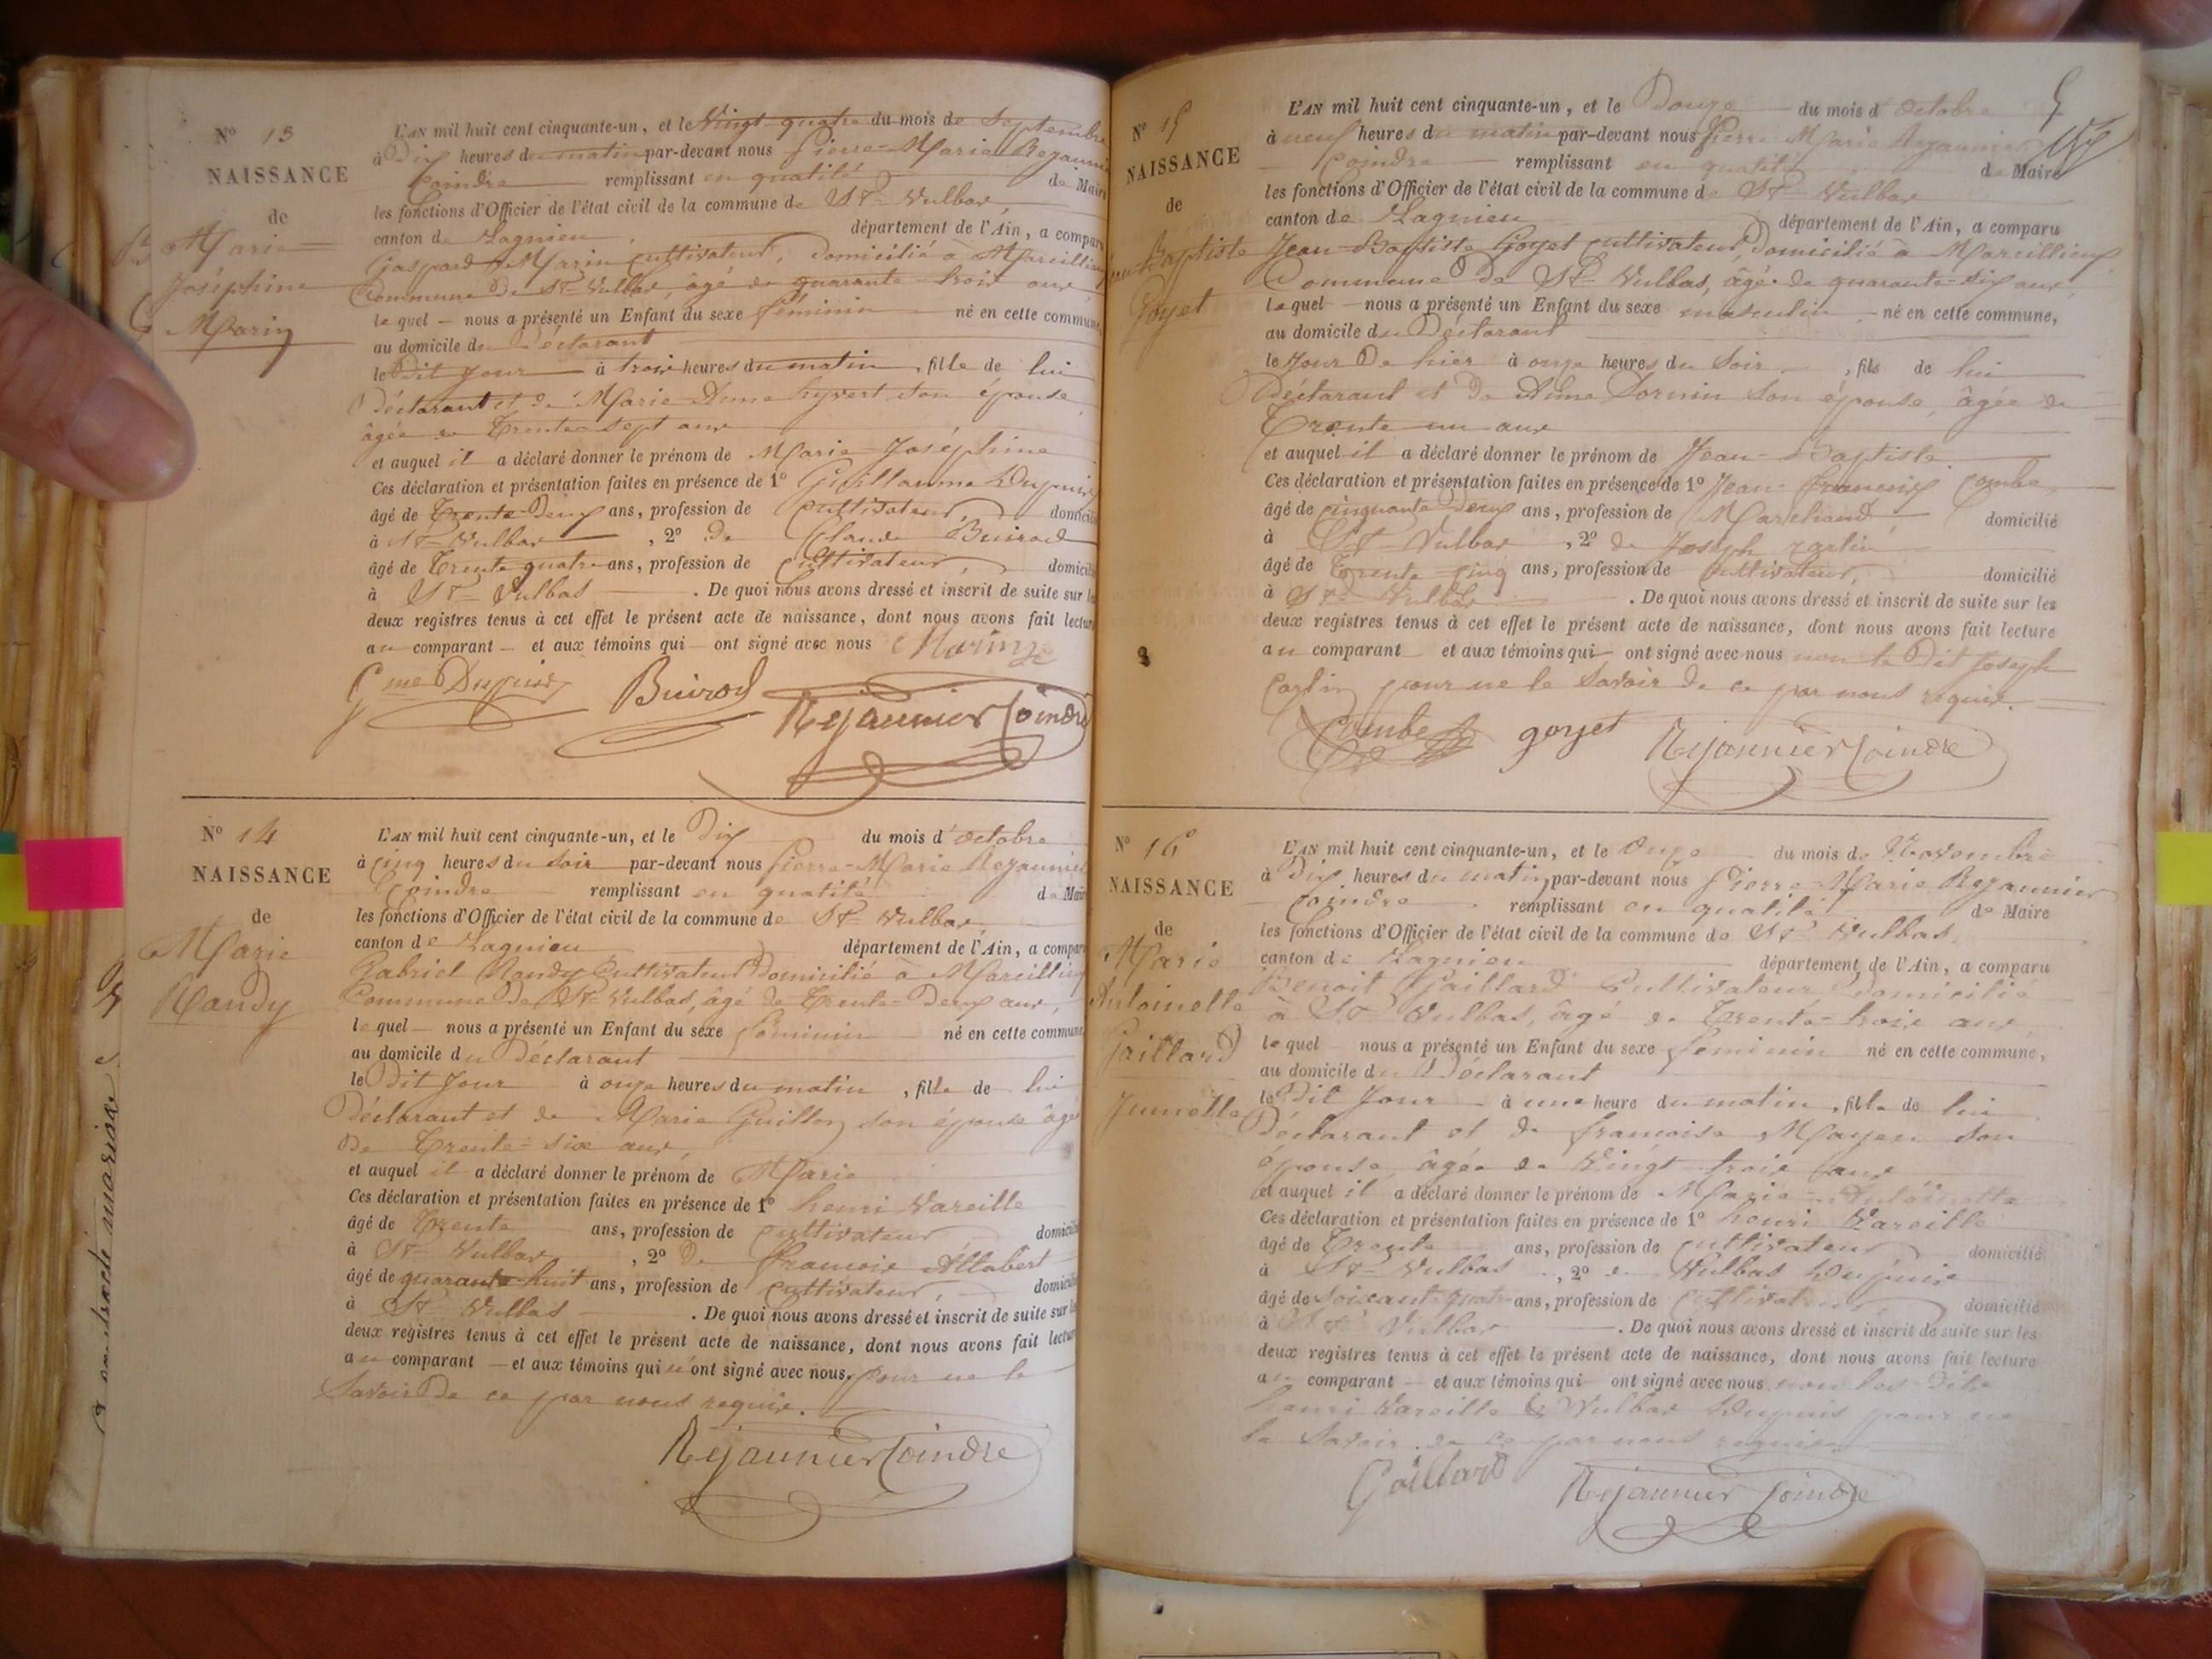 N° 13
NAISSANCE
de
Marie
Joséphine
Marin
L'AN mil huit cent cinquante-un, et le Vingt-quatre du mois de Septembre
à Dix heures du matin par-devant nous Pierre-Marie Rejaunier
Coindre remplissant en qualité de Maire
les fonctions d'Officier de l'état civil de la commune de St Vulbas,
canton de Lagnieu, département de l'Ain, a comparu
Gaspard Marin cultivateur, domicilié à Marcillieux
Commune de St Vulbas, âgé de quarante-trois ans,
lequel nous a présenté un Enfant du sexe féminin né en cette commune,
au domicile du Déclarant
le Dit Jour à trois heures du matin, fille de lui
Déclarant et de Marie Anne hyvert son épouse,
âgée de Trente-sept ans
et auquel il a déclaré donner le prénom de Marie-Joséphine
Ces déclaration et présentation faites en présence de 1° Guillaume Dupuis
âgé de Trente-Deux ans, profession de Cultivateur, domicilié
à St Vulbas, 2° de Claude Buirod
âgé de Trente quatre ans, profession de Cultivateur, domicilié
à St Vulbas. De quoi nous avons dressé et inscrit de suite sur les
deux registres tenus à cet effet le présent acte de naissance, dont nous avons fait lecture
au comparant et aux témoins qui ont signé avec nous Marin
Gme Dupuis Buirod Rejaunier Coindre
N° 14
NAISSANCE
de
Marie
Randy
L'AN mil huit cent cinquante-un, et le Dix du mois d'octobre
à Cinq heures du soir par-devant nous Pierre-Marie Rejaunier
Coindre remplissant en qualité de Maire
les fonctions d'Officier de l'état civil de la commune de St Vulbas,
canton de Lagnieu département de l'Ain, a comparu
Gabriel Randy Cultivateur Domicilié à Marcillieux
Commune De St Vulbas, âgé de Trente-Deux ans,
lequel nous a présenté un Enfant du sexe féminin né en cette commune,
au domicile du Déclarant
le Dit Jour à onze heures du matin, fille de lui
Déclarant et de Marie Guillon son épouse âgée
De Trente-six ans,
et auquel il a déclaré donner le prénom de Marie
Ces déclaration et présentation faites en présence de 1° henri Vareille
âgé de Trente ans, profession de Cultivateur domicilié
à St Vulbas, 2° De François Allabert
âgé de quarante-huit ans, profession de Cultivateur, domicilié
à St Vulbas. De quoi nous avons dressé et inscrit de suite sur les
deux registres tenus à cet effet le présent acte de naissance, dont nous avons fait lecture
au comparant et aux témoins qui n'ont signé avec nous, pour ne le
Savoir De ce par nous requis.
Rejaunier Coindre
5
N° 15
NAISSANCE
de
Baptiste
Goyet
L'AN mil huit cent cinquante-un, et le Douze du mois d'octobre
à neuf heures du matin par-devant nous Pierre Marie Rejaunier
Coindre remplissant en qualité de Maire
les fonctions d'Officier de l'état civil de la commune de St Vulbas
canton de Lagnieu département de l'Ain, a comparu
Jean-Baptiste Goyet cultivateur, Domicilié à Marcillieux
Commune De St Vulbas, âgé de quarante-six ans,
lequel nous a présenté un Enfant du sexe masculin né en cette commune,
au domicile du Déclarant
le Jour De hier à onze heures du Soir, fils de lui
Déclarant et De Anne Dornin son épouse, âgée de
Trente un ans
et auquel il a déclaré donner le prénom de Jean-Baptiste
Ces déclaration et présentation faites en présence de 1° Jean-François Combe
âgé de cinquante Deux ans, profession de Marchand domicilié
à St Vulbas, 2° de Joseph Carlin
âgé de Trente cinq ans, profession de Cultivateur, domicilié
à St Vulbas. De quoi nous avons dressé et inscrit de suite sur les
deux registres tenus à cet effet le présent acte de naissance, dont nous avons fait lecture
au comparant et aux témoins qui ont signé avec nous non le Dit Joseph
Carlin pour ne le Savoir De ce par nous requis.
Combe goyet Rejaunier Coindre
N° 16
NAISSANCE
de
Marie
Antoinette
Gaillard
Jumelle
L'AN mil huit cent cinquante-un, et le Onze du mois de Novembre
à Dix heures du matin, par-devant nous Pierre-Marie Rejaunier
Coindre remplissant en qualité de Maire
les fonctions d'Officier de l'état civil de la commune de St Vulbas
canton de Lagnieu département de l'Ain, a comparu
Benoit Gaillard Cultivateur Domicilié
à St Vulbas, âgé de Trente-trois ans
lequel nous a présenté un Enfant du sexe féminin né en cette commune,
au domicile du Déclarant
le Dit Jour à une heure du matin, fille de lui
Déclarant et de françoise Mayen son
épouse, âgée de Vingt-trois ans
et auquel il a déclaré donner le prénom de Marie-Antoinette
Ces déclaration et présentation faites en présence de 1° henri Vareille
âgé de Trente ans, profession de Cultivateur domicilié
à St Vulbas, 2° de Vulbas Dupuis
âgé de Soixante-quatre ans, profession de Cultivateur domicilié
à St Vulbas. De quoi nous avons dressé et inscrit de suite sur les
deux registres tenus à cet effet le présent acte de naissance, dont nous avons fait lecture
au comparant et aux témoins qui ont signé avec nous non les Dits
henri Vareille & Vulbas Dupuis pour ne
le Savoir de ce par nous requis.
Gaillard Rejaunier Coindre